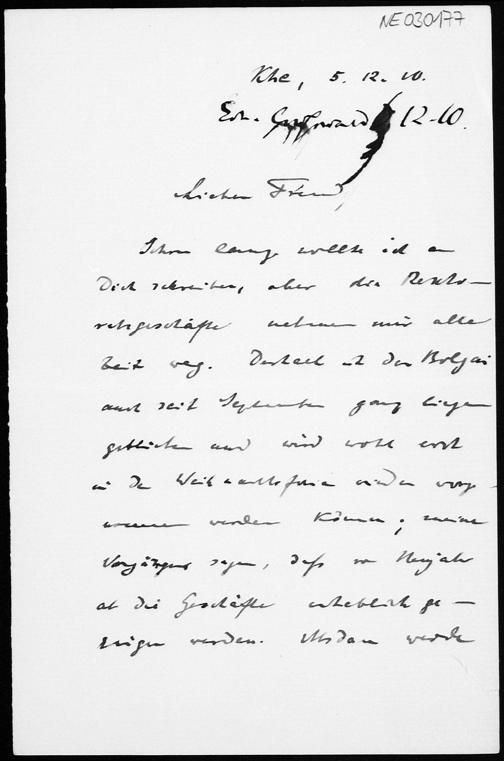 NE030177
Khe, 5. 12. 10.
12-10.
Lieber Freund,
Schon lange wollte ich an
Dich schreiben, aber die Rekto-
ratsgeschäfte nehmen mir alle
Zeit weg. Deshalb ist der Bolyai
auch seit September ganz liegen
geblieben und wird wohl erst
in den Weihnachtsferien wieder vorge-
nommen werden können; meine
Vorgänger sagen, daß von Neujahr
ab die Geschäfte erheblich ge-
ringer werden. Alsdann werde